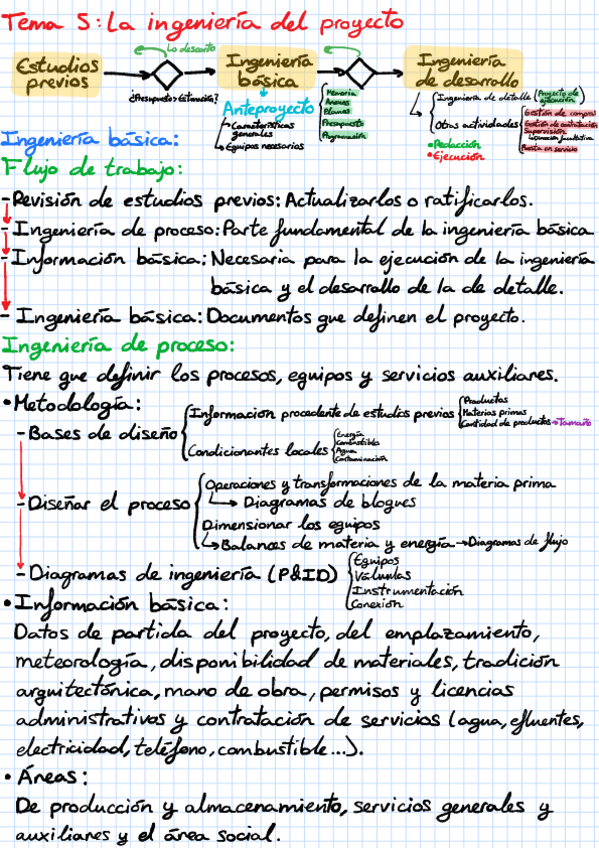 Tema 5: La ingeniería del proyecto
Lo descarto
Estudios previos
¿Presupuesto>Estimación?
Ingeniería básica
Anteproyecto
Características generales
Equipos necesarios
Memoria
Anexos
Planos
Presupuesto
Programación
Ingeniería de desarrollo
Ingeniería de detalle (Proyecto de ejecución)
Otras actividades
Gestión de compras
Gestión de contratación
Supervisión
Puesta en servicio
•Redacción
•Ejecución
Ingeniería básica:
Flujo de trabajo:
-Revisión de estudios previos: Actualizarlos o ratificarlos.
- Ingeniería de proceso: Parte fundamental de la ingeniería básica
-Información básica: Necesaria para la ejecución de la ingeniería
básica y el desarrollo de la de detalle.
- Ingeniería básica: Documentos que definen el proyecto.
Ingeniería de proceso:
Tiene que definir los procesos, equipos y servicios auxiliares.
•Metodología:
-Bases de diseño
Información procedente de estudios previos
Productos
Materias primas
Cantidad de productos→Tamaño
Condicionantes locales
Energía
Combustibles
Agua
Contaminación
-Diseñar el proceso
Operaciones y transformaciones de la materia prima
→ Diagramas de bloques
Dimensionar los equipos
→Balances de materia y energía→Diagramas de flujo
-Diagramas de ingeniería (P&ID)
Equipos
Válvulas
Instrumentación
Conexión
•Información básica:
Datos de partida del proyecto, del emplazamiento,
meteorología, disponibilidad de materiales, tradición
arquitectónica, mano de obra, permisos y licencias
administrativos y contratación de servicios (agua, efluentes,
electricidad, teléfono, combustible...).
• Áreas:
De producción y almacenamiento, servicios generales y
auxiliares y el área social.